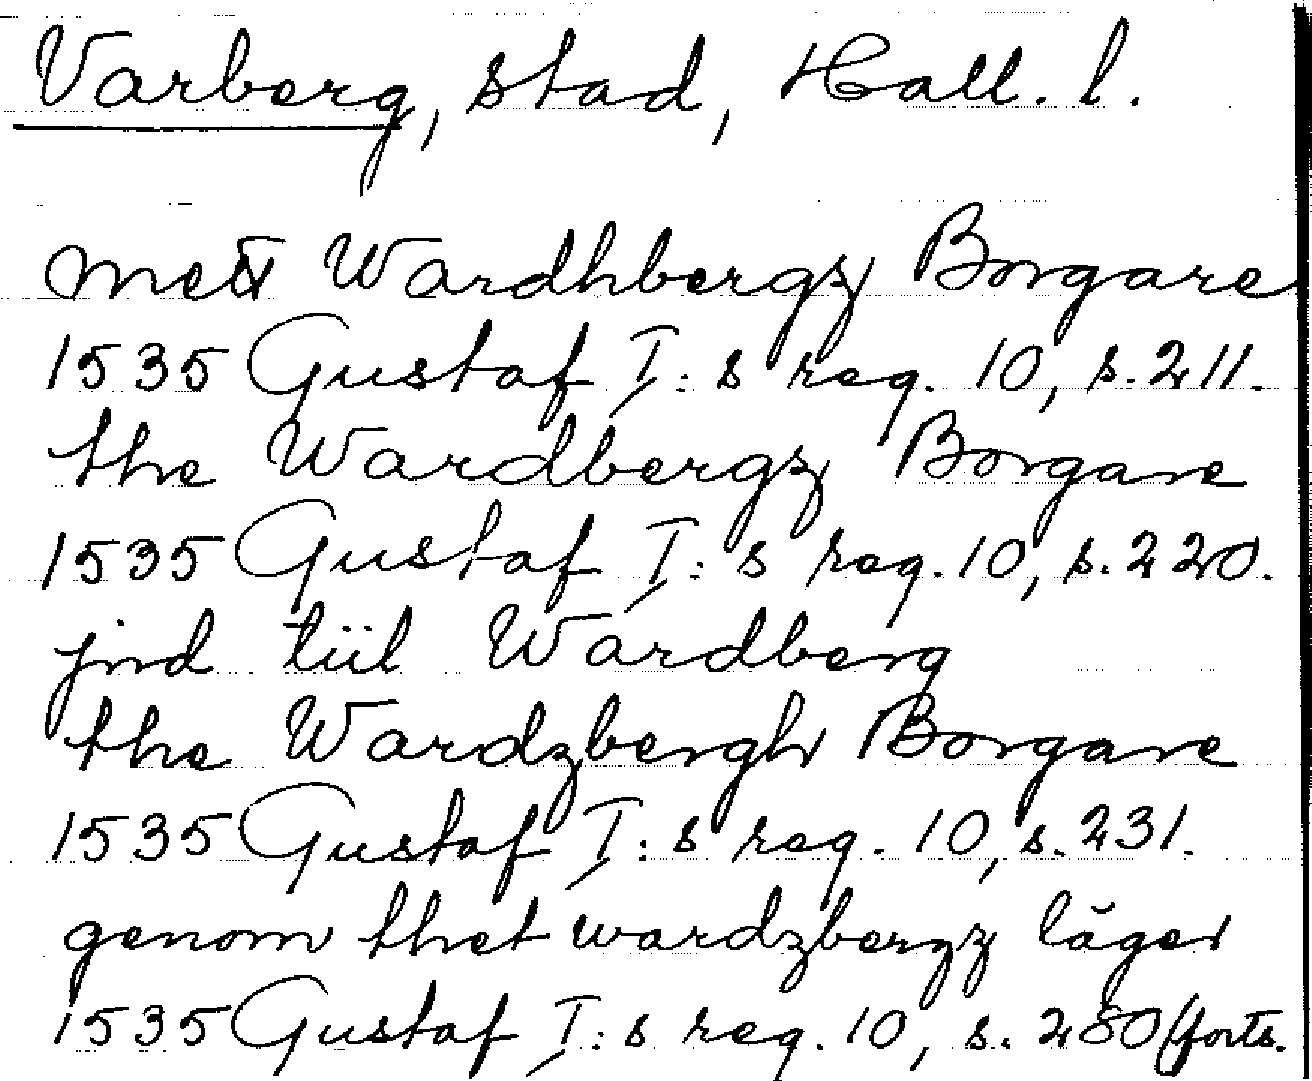 Varberg, stad, Hall. l.
mett Wardhbergz Borgare
1535 Gustaf I:s reg. 10, s. 211.
the Wardbergz Borgare
1535 Gustaf I:s reg. 10, s. 220.
jnd tüil Wardberg
the Wardzbergh Borgare
1535 Gustaf I:s reg. 10, s. 231.
genom thet wardzbergz läger
1535 Gustaf I:s reg. 10, s. 280 (forts.